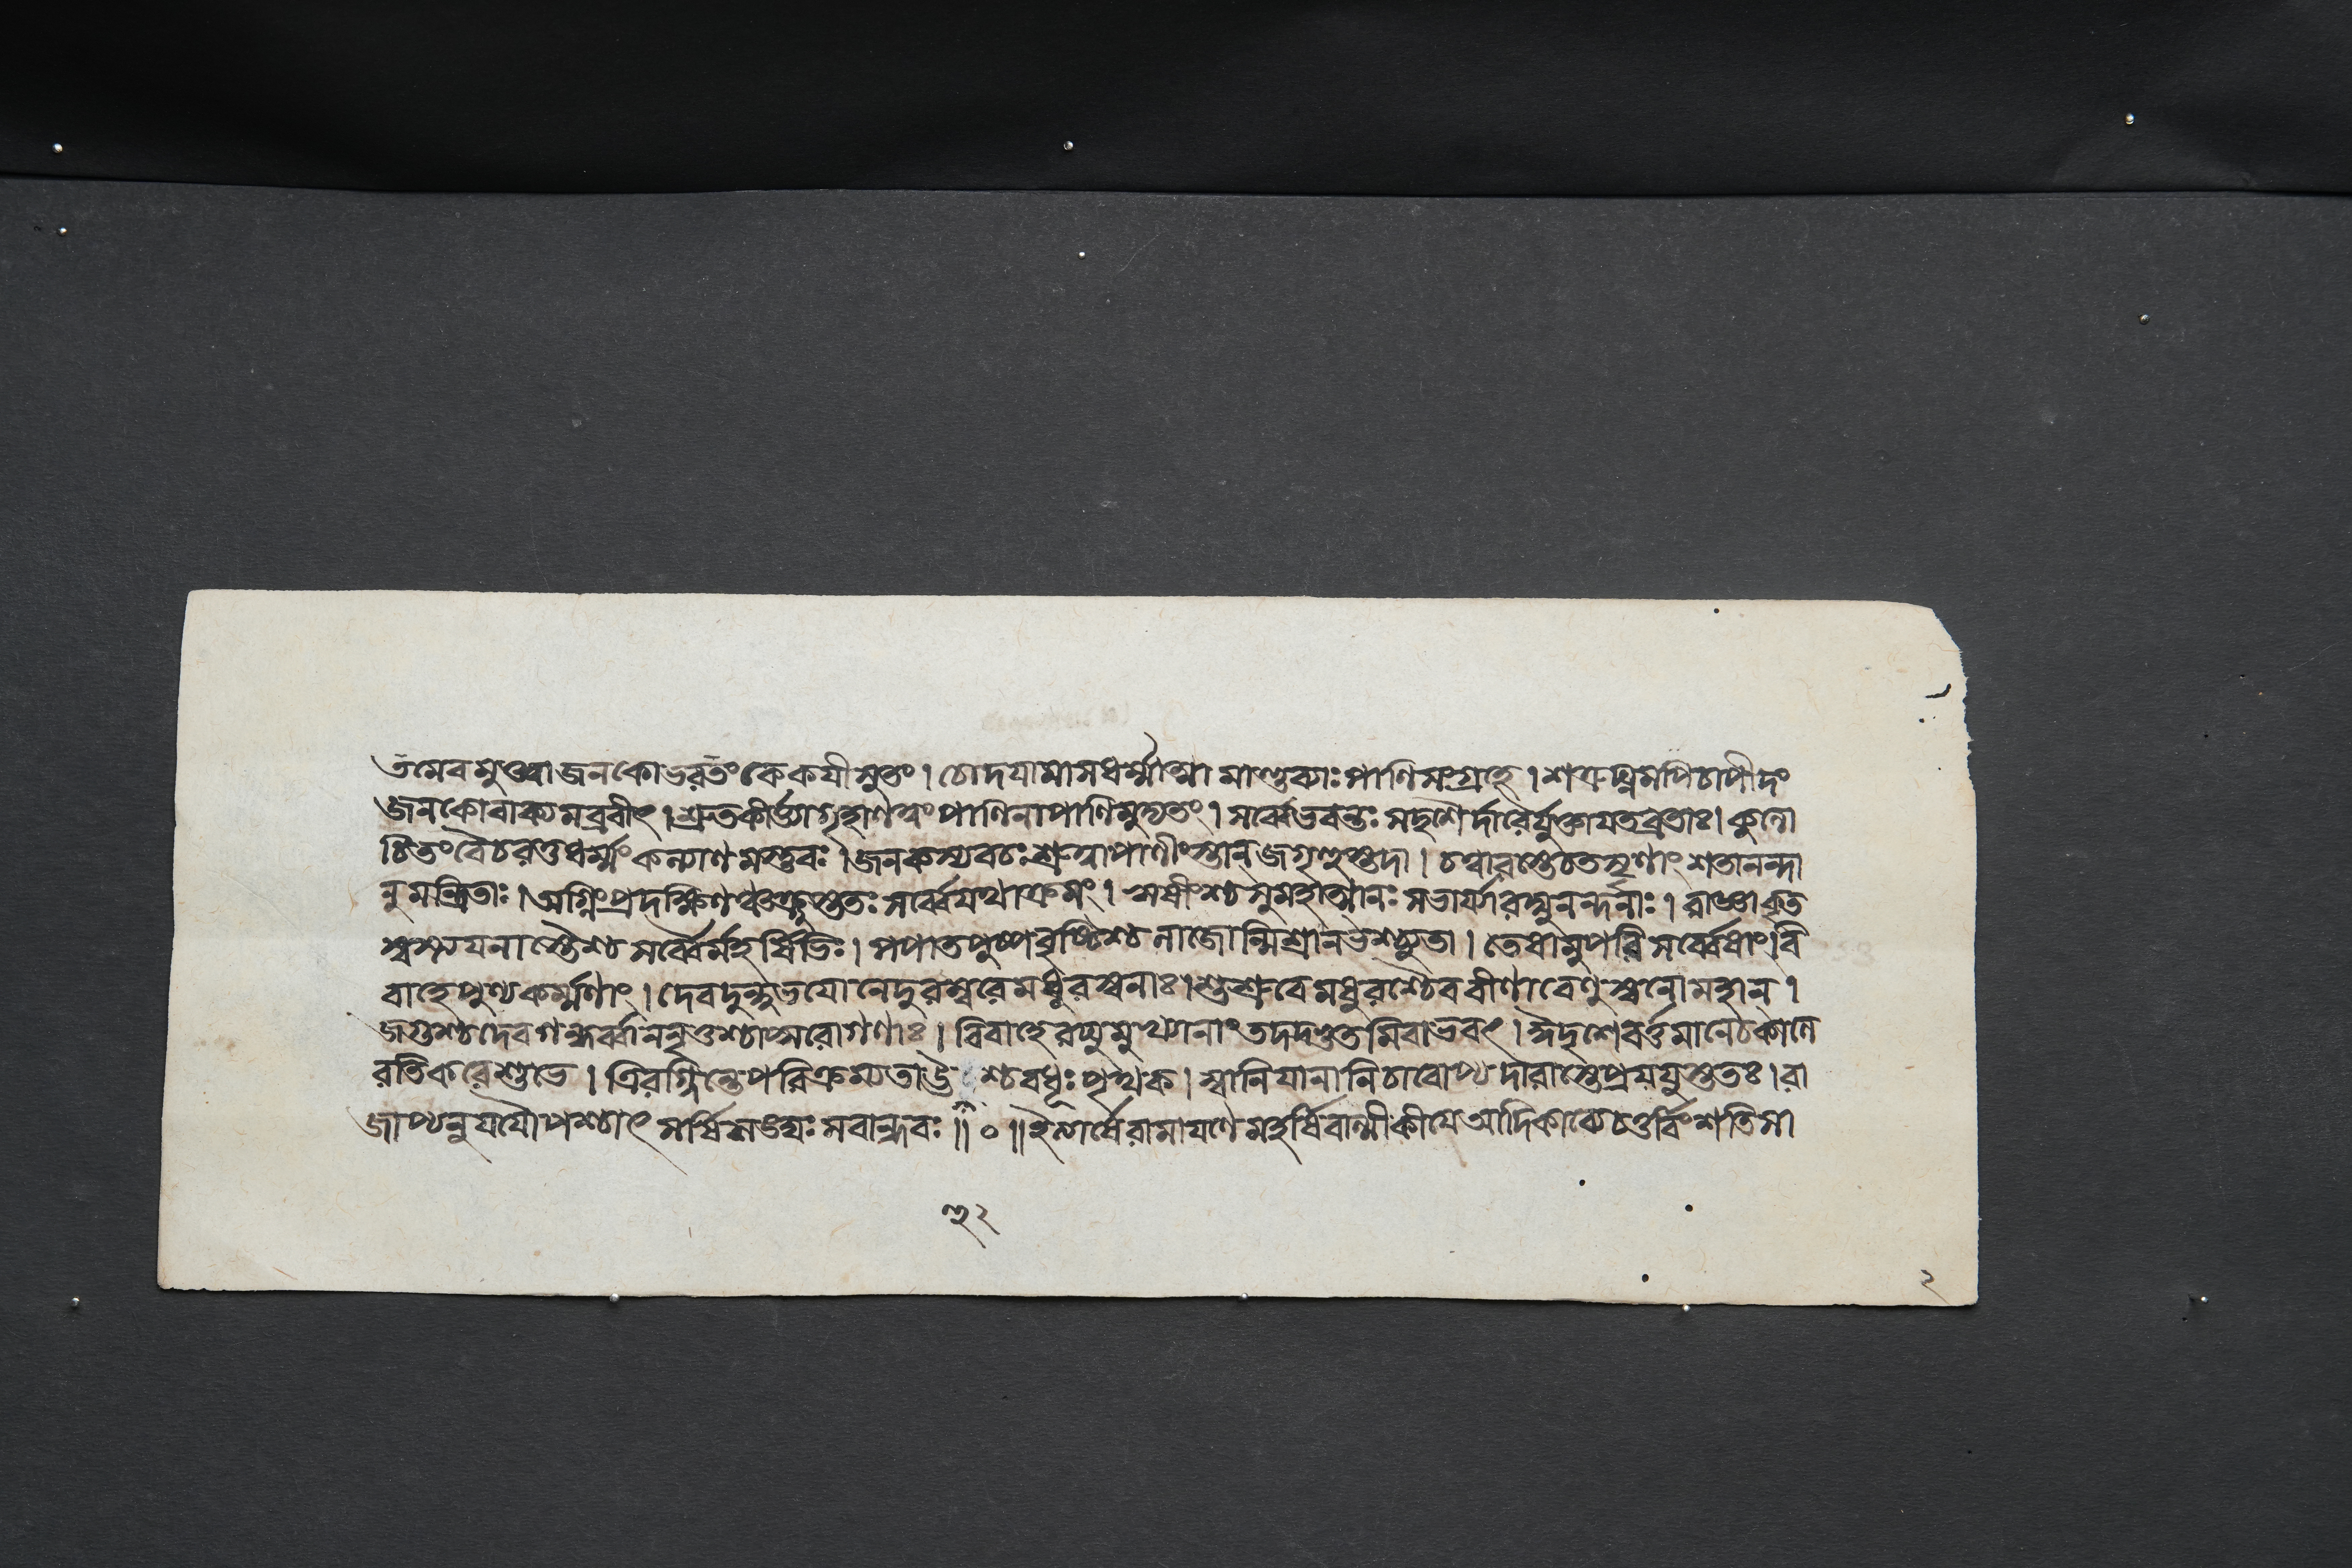 তমেবমুক্ত্বা জনকো ভরতং কেকয়ীসুতং । চোদয়ামাস ধর্ম্মাত্মা মাণ্ডব্যাঃ পাণিসংগ্রহে । শত্রুঘ্নমপি চাপীদং
জনকো বাক্যমব্রবীৎ । শ্রুতকীর্ত্ত্যা গৃহাণ ত্বং পাণিনা পাণিমুদ্যতং । সর্ব্বে ভবন্তঃ সদৃশৈর্দারৈর্যুক্তা যতব্রতাঃ । কুলো
চিতং বৈ চরত ধর্ম্মং কল্যাণমস্তু বঃ । জনকস্য বচঃ শ্রুত্বা পাণীংস্তান্ জগৃহুস্তদা । চত্বারস্তে চতসৃণাং শতানন্দা
নুমন্ত্রিতাঃ । অগ্নিং প্রদক্ষিণঞ্চক্রুস্ততঃ সর্ব্বে যথাক্রমং । ঋষীংশ্চ সুমহাত্মানঃ সভার্য্যা রঘুনন্দনাঃ । রাজ্ঞা কৃত
স্বস্ত্যয়নাস্তৈশ্চ সর্ব্বৈর্মহর্ষিভিঃ । পপাত পুষ্পবৃষ্টিশ্চ লাজোন্মিশ্রা নভশ্চ্যুতা । তেষামুপরি সর্ব্বেষাং বি
বাহে পুণ্যকর্ম্মণাং । দেবদুন্দুভয়ো নেদুরম্বরে মধুরস্বনাঃ । শুশ্রুবে মধুরশ্চৈব বীণাবেণুস্বনো মহান্ ।
জগুশ্চ দেবগন্ধর্ব্বা ননৃতুশ্চাপ্সরোগণাঃ । বিবাহে রঘুমুখ্যানাং তদদ্ভুতমিবাভবৎ । ঈদৃশে বর্ত্তমানে চ কালে
রতিকরে শুভে । ত্রিরগ্নিন্তে পরিক্রম্য তা শ্চ বধূঃ পৃথক । স্বানি যানানি চারোপ্য দারাংস্তে প্রযযুস্ততঃ । রা
জাপ্যনুযযৌ পশ্চাৎ সর্ষিসঙ্ঘঃ সবান্ধবঃ ॥ ০ ॥ ইত্যার্ষে রামায়ণে মহর্ষিবাল্মীকীয়ে আদিকাব্যে চতুর্বিংশতিসা
২